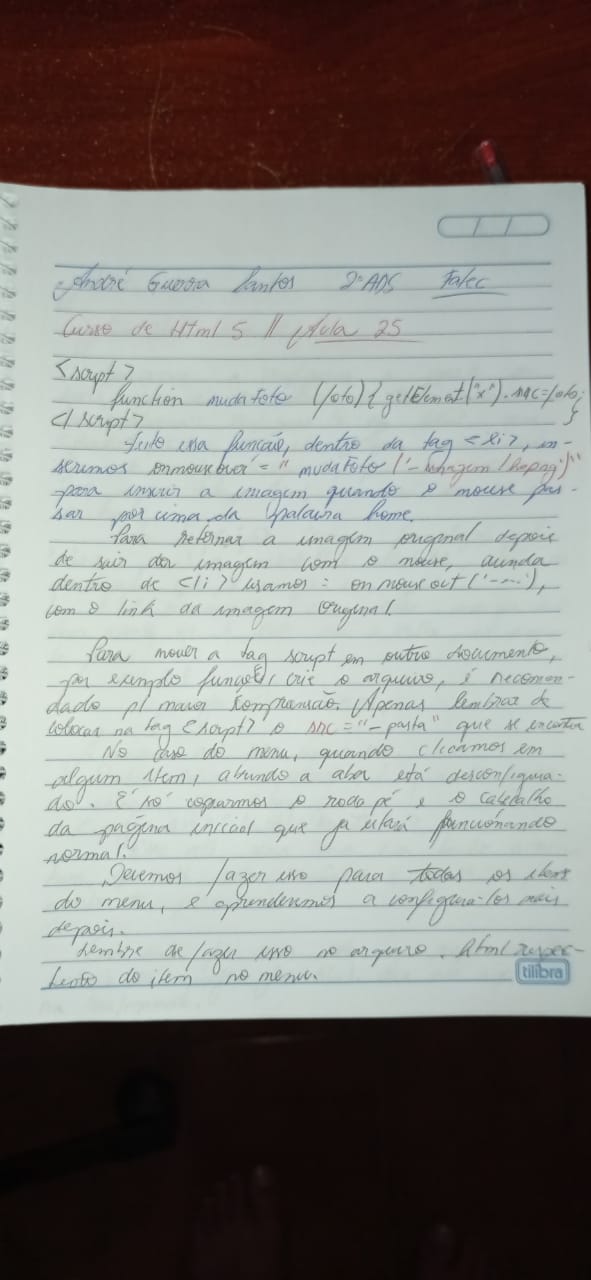 André Guerra Santos 2º ADS Fatec
Curso de Html 5 // Aula 25
<script>
function mudaFoto (foto) { getElement("x").src=foto;
</script> }
feito essa função, dentro da tag <li>, in-
serimos onmouseover = " mudaFoto ('- imagem
para inserir a imagem quando o mouse pas-
sar por cima da palavra home.
Para retornar a imagem original depois
de sair da imagem com o mouse, ainda
dentro de <li> usamos: onmouseout ('----'),
com o link da imagem original.
Para mover a tag script em outro documento,
por exemplo funções, crie o arquivo, é recomen-
dado p/ maior compreensão. Apenas lembrar de
colocar na tag <script> o src="- pasta" que se encontra
No caso do menu, quando clicamos em
algum item, abrindo a aba está desconfigura-
do. É só copiarmos o rodapé e o cabeçalho
da página inicial que já estará funcionando
normal.
Devemos fazer isso para todos os itens
do menu, e aprenderemos a configura-los mais
depois.
Lembre de fazer isso no arquivo .html respec-
do item no menu.
tilibra